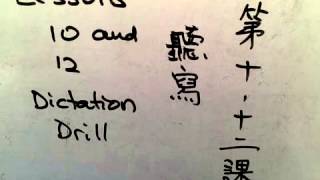 Lessons
10 and
12
Dictation
Drill
聽寫
第十.十二課